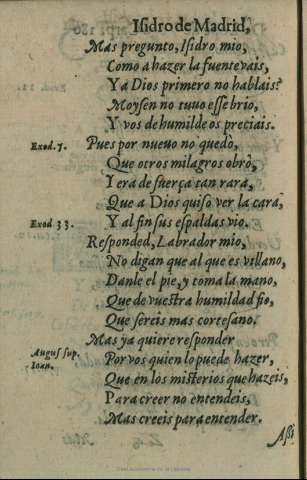 Isidro de Madrid,
Mas pregunto, Isidro mio,
Como a hazer la fuente vais,
Y a Dios primero no hablais?
Moysen no tuuo esse brio,
Y vos de humilde os preciais.
Exod. 7. Pues por nueuo no quedò,
Que otros milagros obrò,
I era de fuerça tan rara,
Que a Dios quiso ver la cara,
Exod 33. Y al fin sus espaldas vio.
Responded, Labrador mio,
No digan que al que es villano,
Danle el pie, y toma la mano,
Que de vuestra humildad fio,
Que sereis mas cortesano.
Mas ya quiere responder
Augus sup. Por vos quien lo puede hazer,
Ioan. Que en los misterios que hazeis,
Para creer no entendeis,
Mas creeis para entender.
Assi